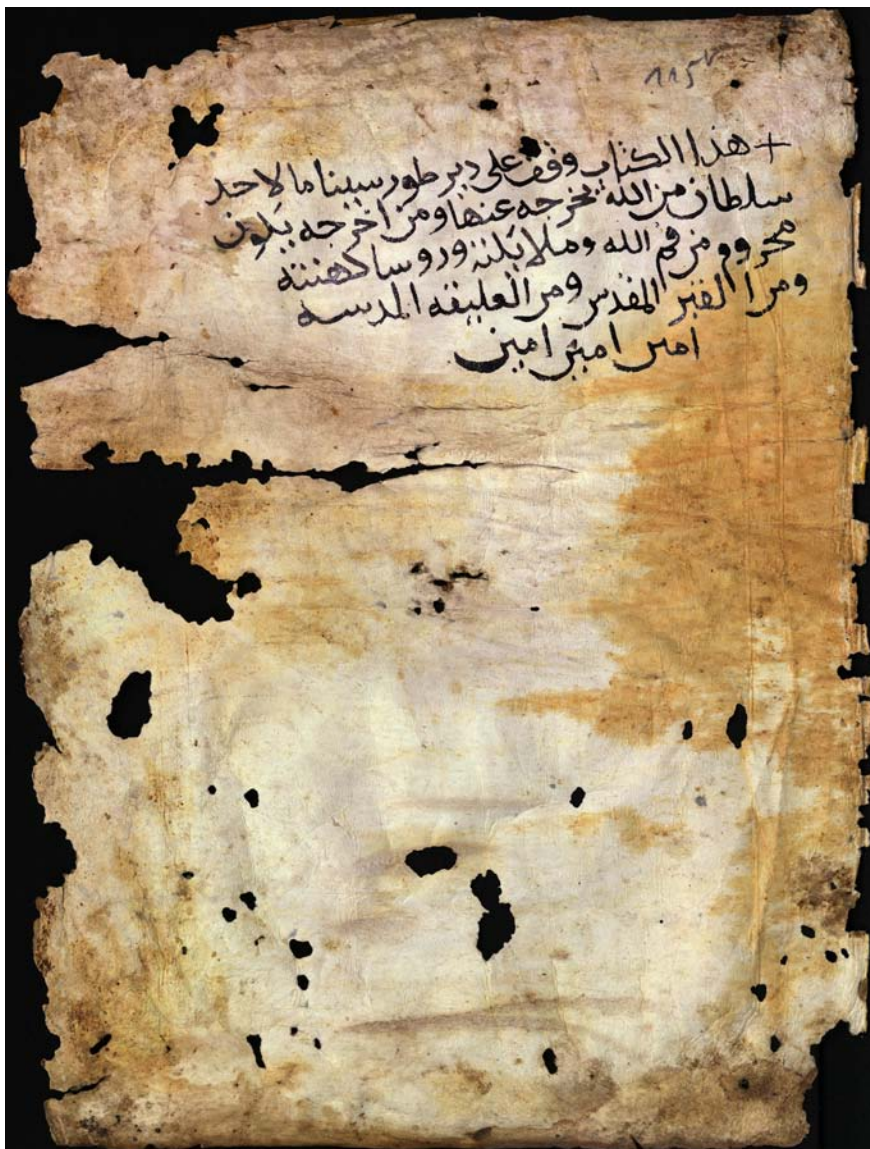 ١١٥٢
+ هذا الكتاب وقف على دير طور سينا ما لاحد
سلطان من الله يخرجه عنها ومن اخرجه يكون
محروم من فم الله وملايكته وروسا كهنته
ومن القبر المقدس ومن العليقه المدسه
امين امين امين